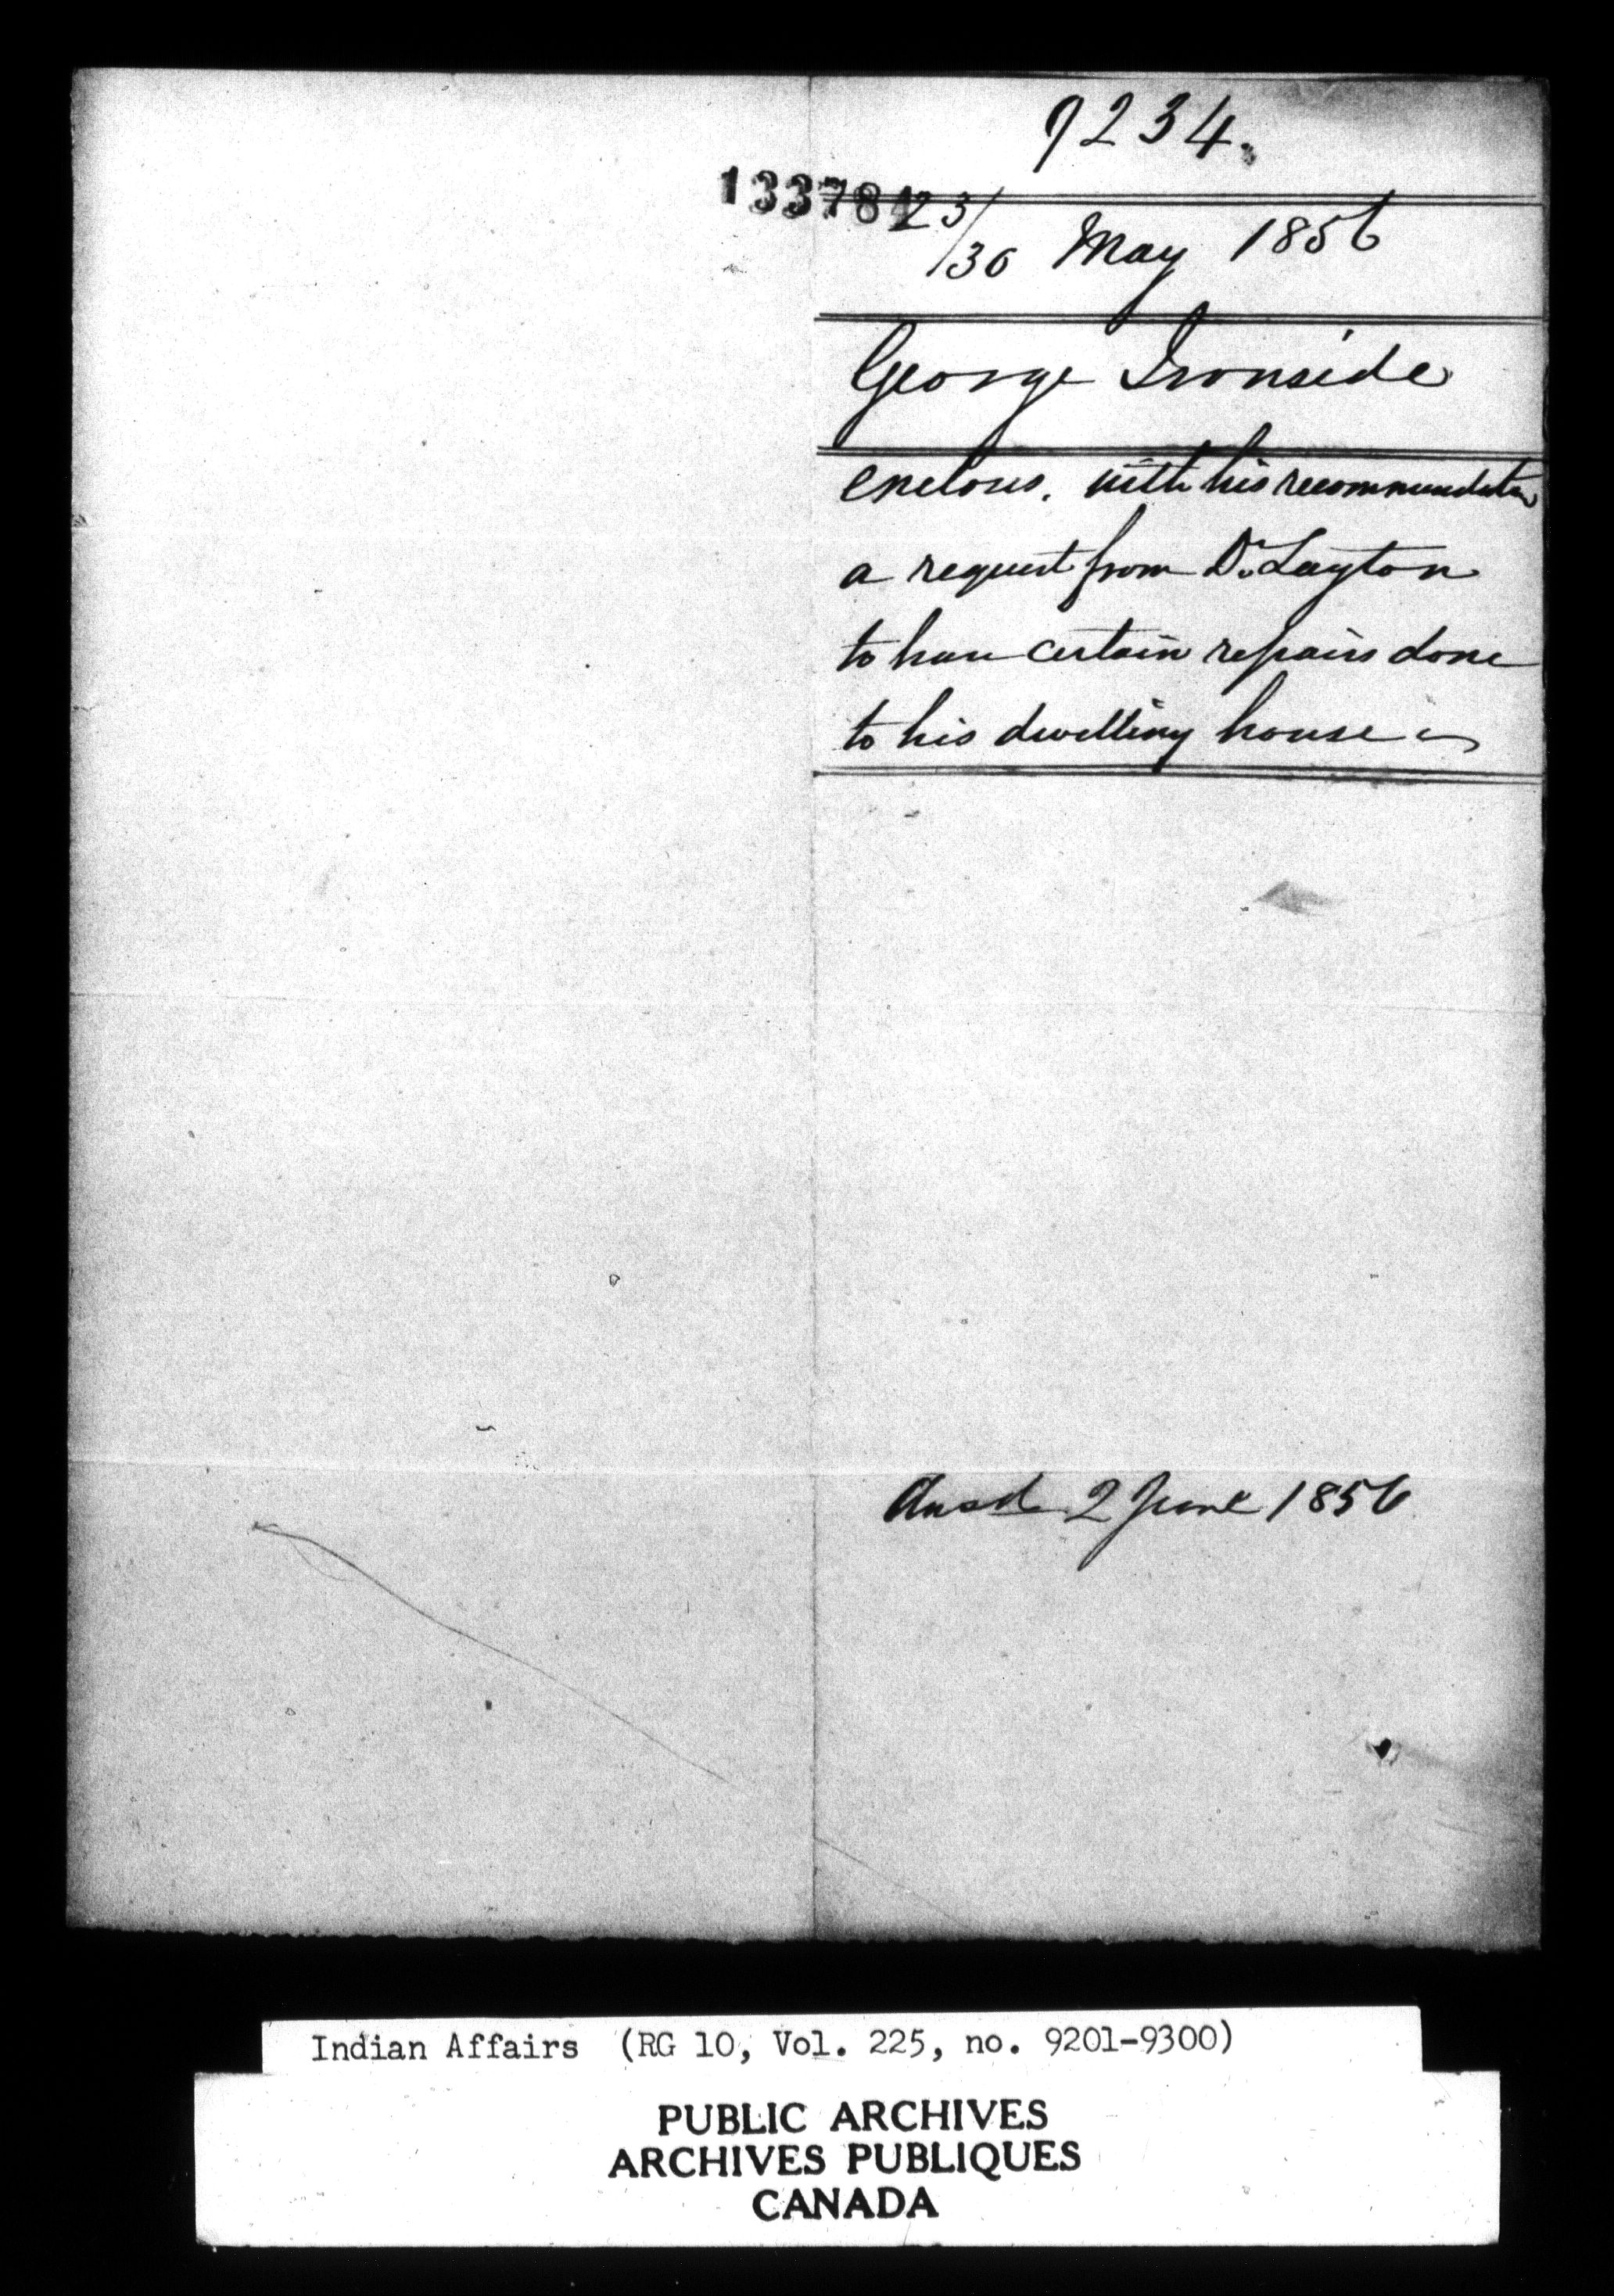 9234.
133784
23/30 May 1856
George Ironside
encloses, with his recommendation
a request from Dr. Layton
to have certain repairs done
to his dwelling house
Ansd 2 June 1856
Indian Affairs (RG 10, Vol. 225, no. 9201-9300)
PUBLIC ARCHIVES
ARCHIVES PUBLIQUES
CANADA